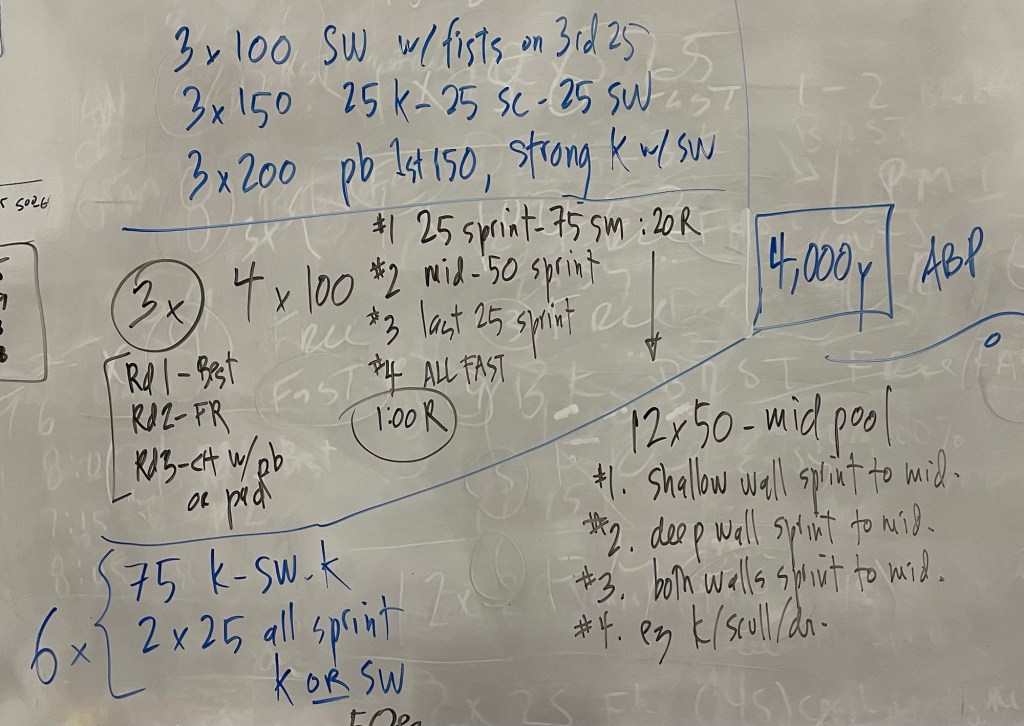 3 x 100 SW w/ fists on 3rd 25
3 x 150 25 K - 25 sc - 25 SW
3 x 200 pb 1st 150, strong K w/ SW
#1 25 sprint - 75 sm :20 R
3x 4 x 100 #2 mid - 50 sprint
#3 last 25 sprint
#4 ALL FAST
1:00 R
Rd 1 - Best
Rd 2 - FR
Rd 3 - CH w/ pb
or pad
4,000y ABP
12 x 50 - mid pool
#1. shallow wall sprint to mid.
#2. deep wall sprint to mid.
#3. both walls sprint to mid.
#4. ez k/scull/dr.
6 x 75 K - SW - K
2 x 25 all sprint
K OR SW